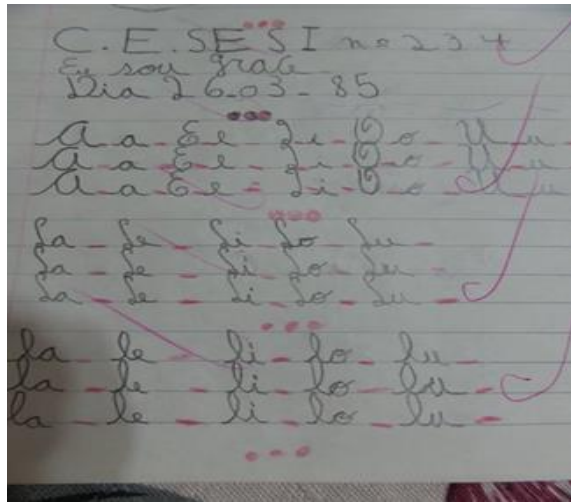 C. E. SESI nº 234
Eu sou grac
Dia 26-03-85
A a - E e - I i - O o - U u
A a - E e - I i - O o - U u
A a - E e - I i - O o - U u
La - Le - Li - Lo - Lu -
La - Le - Li - Lo - Lu -
La - Le - Li - Lo - Lu -
la - le - li - lo - lu -
la - le - li - lo - lu -
la - le - li - lo - lu -